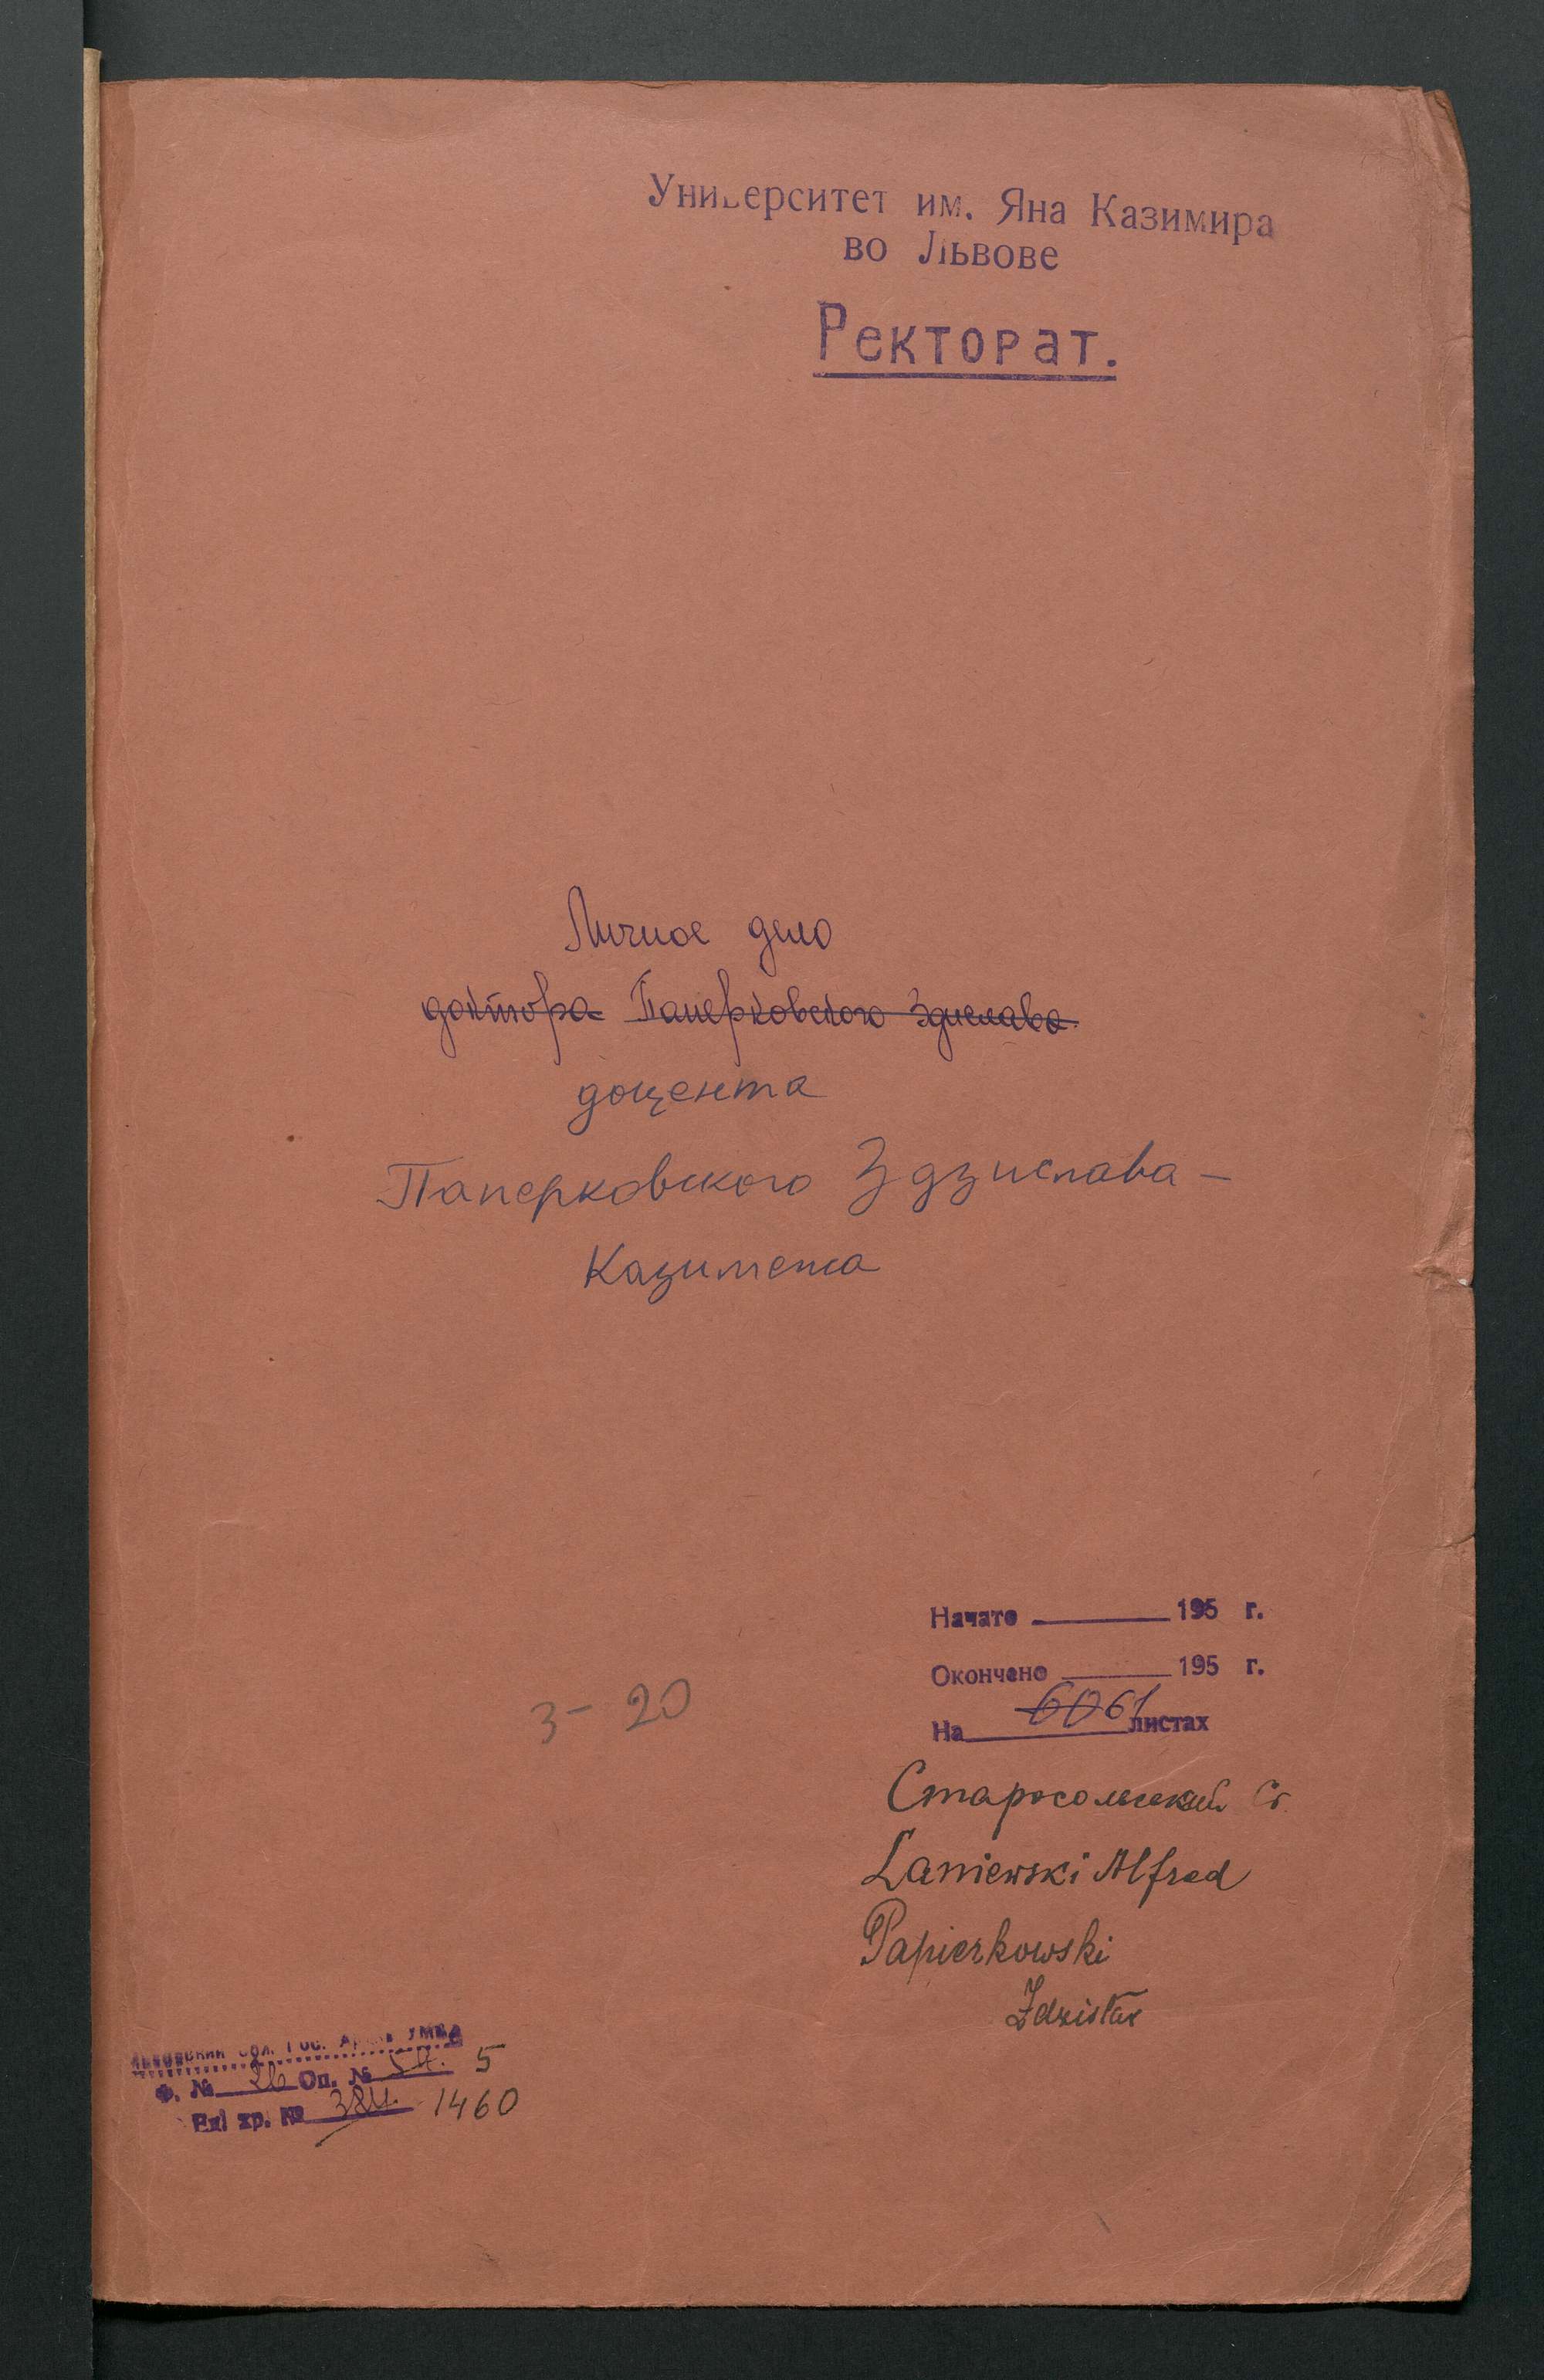 Университет им. Яна Казимира
во Львове
Ректорат.
Личное дело
доктора Паперковского Здислава
доцента
Паперковского Здзислава-
Казимежа
Начато 195 г.
Окончено 195 г.
3-20
На 60 61 листах
Старосольский Ст.
Laniewski Alfred
Papierkowski
Zdzisław
Львовский Обл. Гос. Архив УМВД
Ф. № 26 Оп. № 5
Ед. хр. № 1460